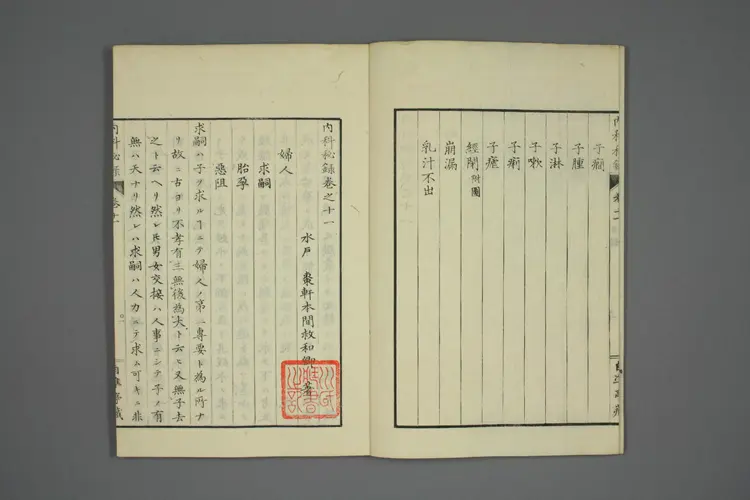 内科秘録 卷十一
子癇
子腫
子淋
子嗽
子痢
子瘧
經閉附圖
崩漏
乳汁不出
内科秘録卷之十一
水戸 棗軒本間救和卿 著
婦人
求嗣
胎孕
惡阻
求嗣ハ子ヲ求ルヿニテ婦人ノ第一專要ト為ル所ナ
リ故ニ古ヨリ不孝有三無後為大ト云ヒ又無子去
之ト云ヘリ然レ𪜈男女交接ハ人事ニシテ子ノ有
無ハ天ナリ然レハ求嗣ハ人力ニテ求ム可キニ非
内科秘録 卷十一